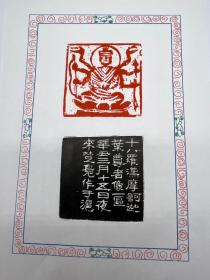 十八羅漢摩訶迦
葉尊者像一區
年三月十五日夜
來楚生作于滬